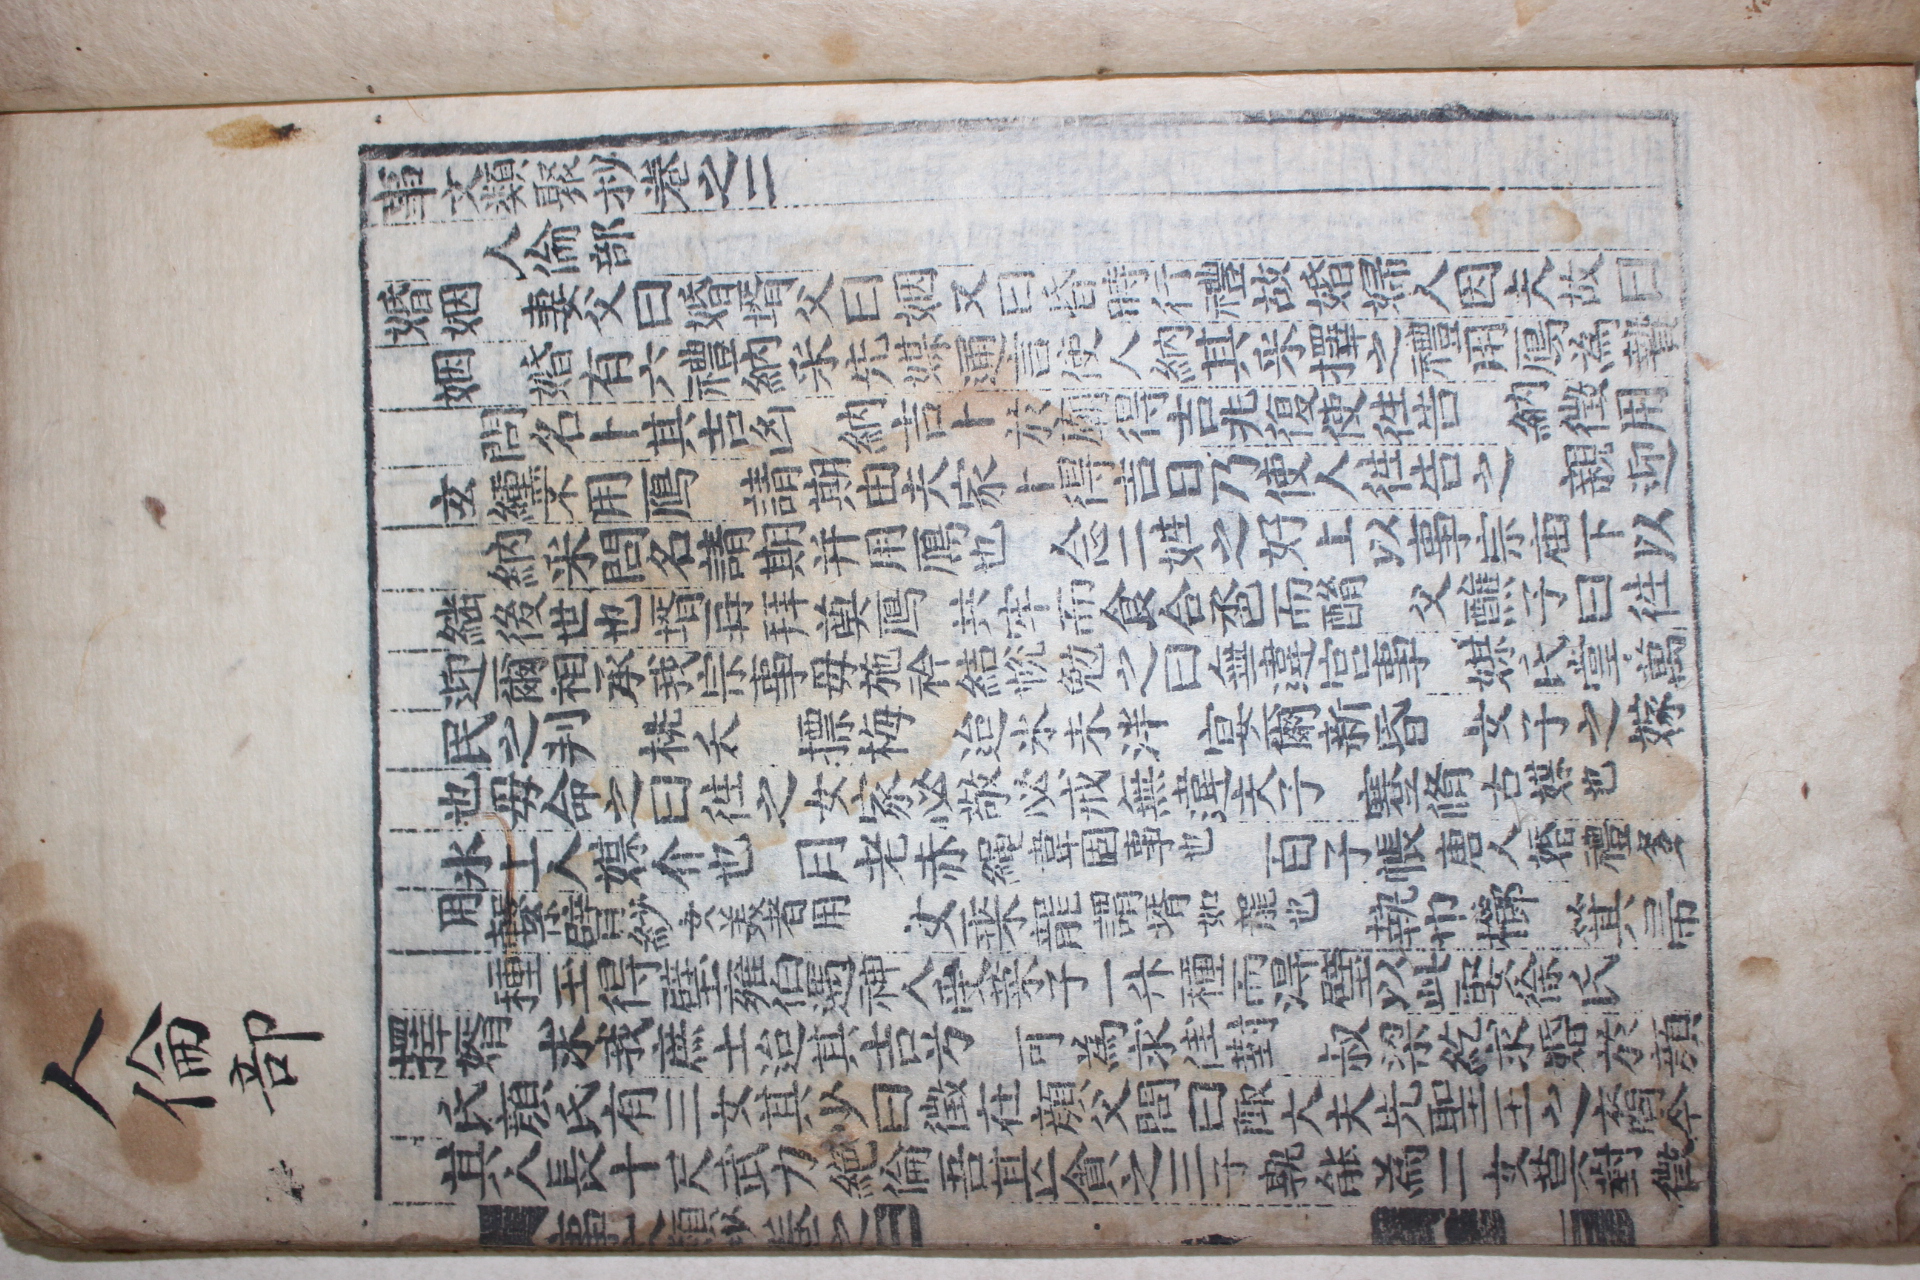 人倫部
事文類聚抄卷之二
人倫部
婚姻 妻父曰婚壻父曰姻又曰昏時行禮故婚婦人因夫故曰
姻 婚有六禮納采先媒通言使人納其采擇之禮用鴈為贄
問名卜其吉凶 納吉卜於廟得吉兆復使徃告 納徵用
玄纁不用鴈 請期由夫家卜得吉日乃使人徃告之 親迎
納采問名請期并用鴈也 合二姓之好上以事宗庙下以
継後世也壻再拜奠鴈 共牢而食合卺而酳 父醮子曰徃
迎爾相承我宗事母施衿結帨勉之曰無違宮事 媒氏掌萬
民之判 桃夭 摽梅 迨氷未泮 宴爾新昏 女子之嫁
也母命之曰徃之女家必敬必戒無違夫子 蹇脩古媒也
氷上人媒介也 月老赤繩韋固事也 百子帳唐人婚禮多
用 繫臂紗女美者用 女乘龍謂壻如龍也 執巾櫛 箕帚
種玉得璧雍伯遇神人受菜子一升種而得璧以此娶徐氏
擇婿 求我庶士迨其吉兮 可為求佳對 叔梁紇求婚於顔
氏顔氏有三女其少曰徵在顔父問曰陬大夫先聖王之裔今
其人長十尺武力絶倫吾甚貪之三子孰能為二女莫對徵
事文類抄 卷之二